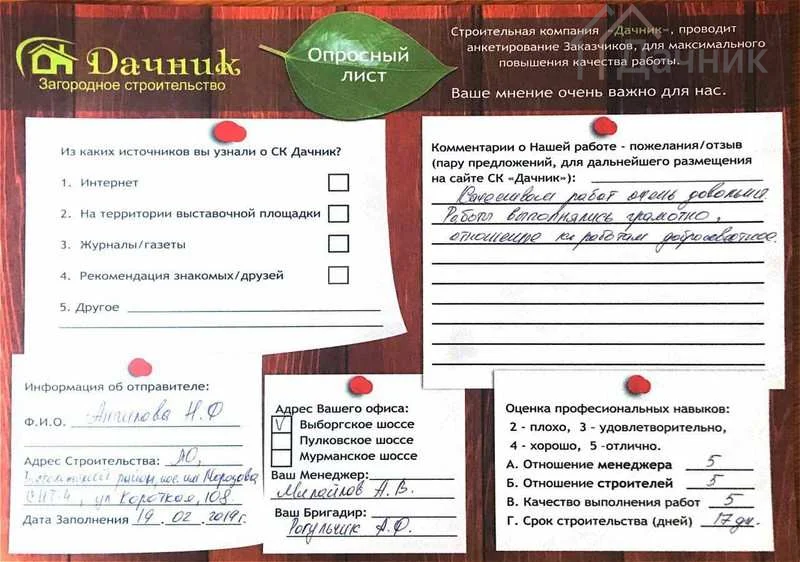 Дачник
Загородное строительство
Опросный
лист
Строительная компания «Дачник», проводит
анкетирование Заказчиков, для максимального
повышения качества работы.
Ваше мнение очень важно для нас.
Дачник
Из каких источников вы узнали о СК Дачник?
1. Интернет
2. На территории выставочной площадки
3. Журналы/газеты
4. Рекомендация знакомых/друзей
5. Другое
Комментарии о Нашей работе - пожелания/отзыв
(пару предложений, для дальнейшего размещения
на сайте СК «Дачник»):
Качеством работ очень довольны.
Работы выполнялись грамотно,
отношение к работам добросовестное.
Информация об отправителе:
Ф.И.О. Н.Ф
Адрес Строительства: ЛО,
район, пос. им Морозова
СНТ-4, ул Короткая, 108
Дата Заполнения 19 . 02 . 2019г.
Адрес Вашего офиса:
V Выборгское шоссе
Пулковское шоссе
Мурманское шоссе
Ваш Менеджер:
Михайлов А.В.
Ваш Бригадир:
Рогульчик А.Ф.
Оценка професиональных навыков:
2 - плохо, 3 - удовлетворительно,
4 - хорошо, 5 -отлично.
А. Отношение менеджера 5
Б. Отношение строителей 5
В. Качество выполнения работ 5
Г. Срок строительства (дней) 17 дн.